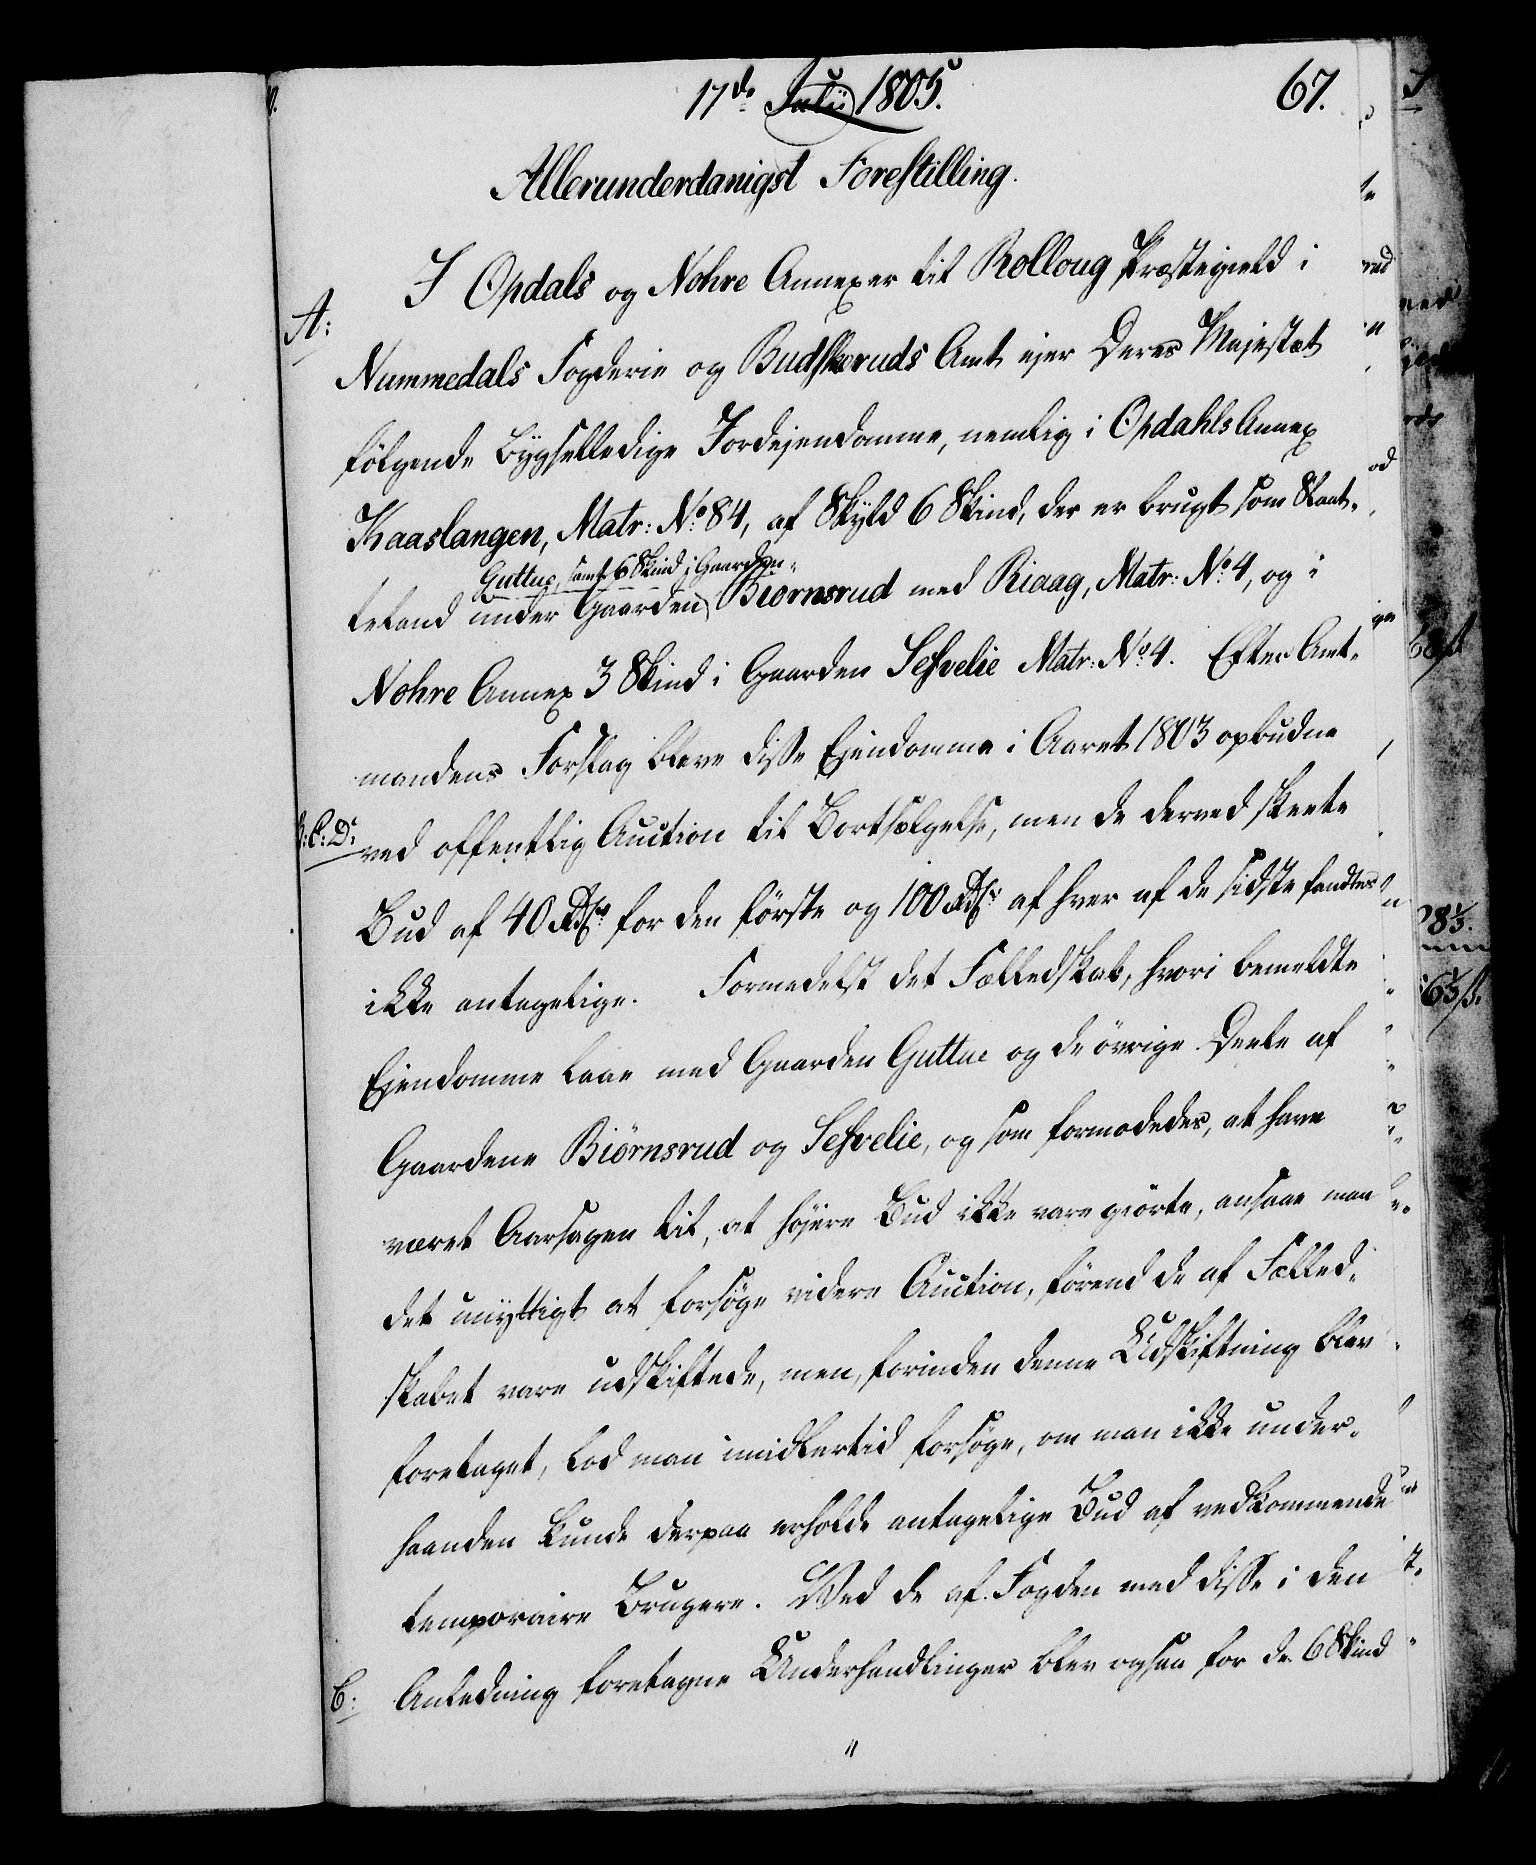 17de Julii 1805.
67.
Allerunderdanigst Forestilling.
I Opdals og Nohre Annexer til Rolloug Præstegield i
A:
Nummedals Fogderie og Budskeruds Amt ejer Deres Majestæt
følgende bygselledige Jordejendomme, nemlig i Opdahls Annex
Kaaslangen, Matr: No 84, af Skyld 6 Skind, der er brugt som Slaat-
Guttue, samt 6 Skind i Gaarden
teland under Gaarden Biornsrud med Riaag, Matr: No 4, og i
Nohre Annex 3 Skind i Gaarden Sessvelie Matr: No 4. Efter Amt-
mandens Forslag bleve disse Ejendomme i Aaret 1803 opbudne
B: C: D:
ved offentlig Auction til Bortsælgelse, men de derved skeete
Bud af 40 Rdr for den første og 100 Rdr af hver af de sidste fandtes
ikke antagelige. Formedelst det Fælledskab, hvori bemeldte
Ejendomme laae med Gaarden Guttue og de øvrige Deele af
Gaardene Biörnsrud og Sessvelie, og som formodedes, at have
været Aarsagen til, at højere Bud ikke vare giorte, ansaae man
det unyttigt at forsøge videre Auction, førend de af Fælled-
skabet vare udskiftede, men, forinden denne Udskiftning blev
foretaget, lod man imidlertid forsøge, om man ikke under-
haanden kunde derpaa erholde antagelige Bud af vedkommende
temporaire Brugere. Ved de af Fogden med disse i den
E:
Anledning foretagne Underhandlinger blev ogsaa for de 6 Skind